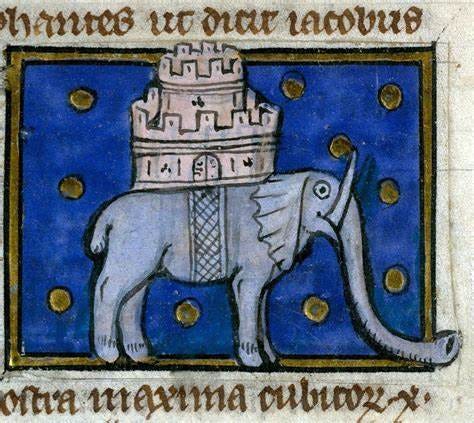 phantes ut dicit iacobus
ostra maxima cubitor. x.